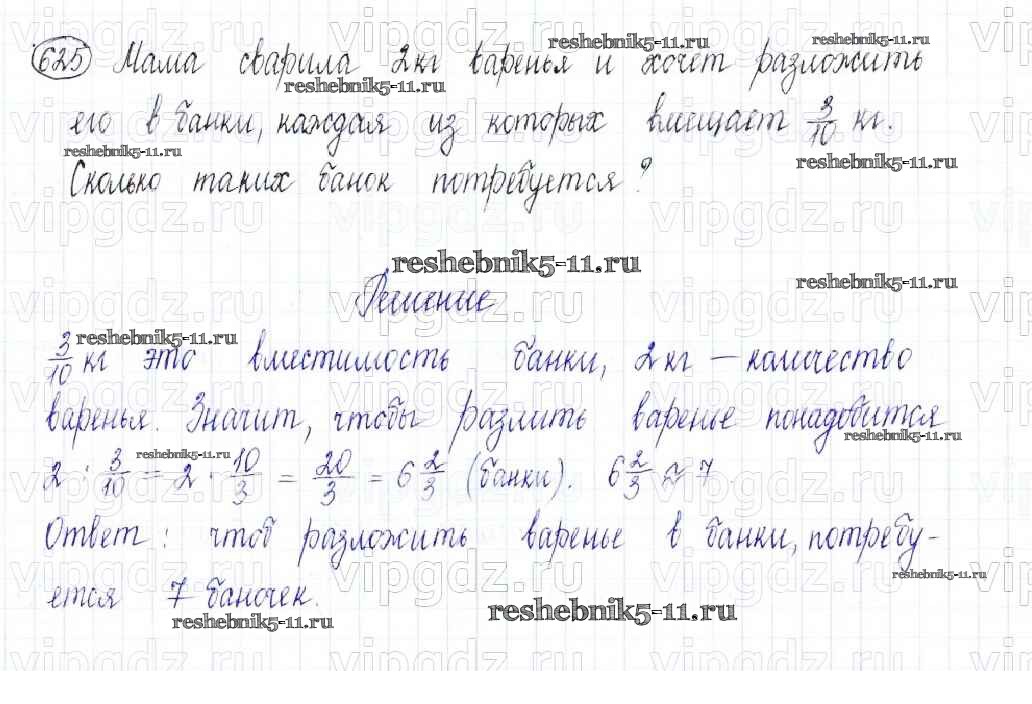 625 Мама сварила 2кг варенья и хочет разложить
его в банки, каждая из которых вмещает 3/10 кг.
Сколько таких банок потребуется?
Решение
3/10 кг это вместимость банки, 2кг — количество
варенья. Значит, чтобы разлить варенье понадобится
2 : 3/10 = 2 · 10/3 = 20/3 = 6 2/3 (банки). 6 2/3 ≈ 7.
Ответ: чтоб разложить варенье в банки, потребу-
ется 7 баночек.
reshebnik5-11.ru
vipgdz.ru